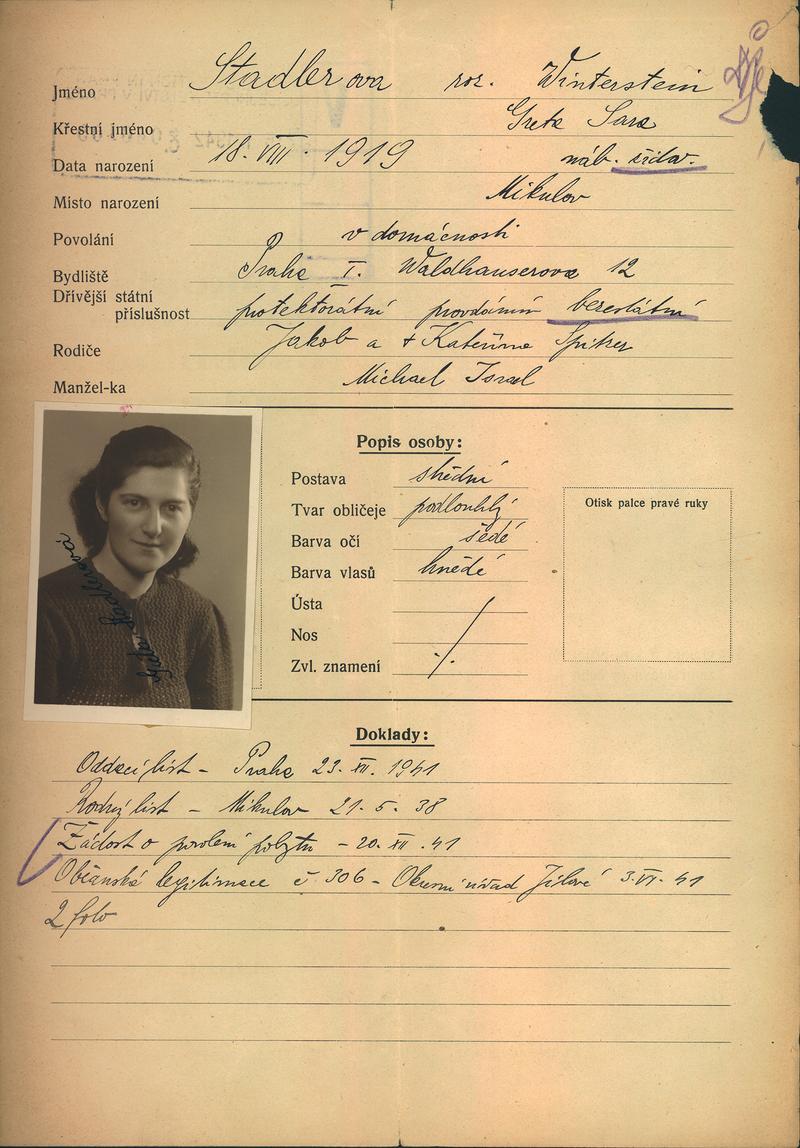 Jméno Stadlerova roz. Winterstein
Křestní jméno Greta Sara
Data narození 18. VIII. 1919 náb. židov.
Místo narození Mikulov
Povolání v domácnosti
Bydliště Praha I. Waldhauserova 12
Dřívější státní
příslušnost protektorátní provdáním bezestátní
Rodiče Jakob a + Kateřina Spitzer
Manžel-ka Michael Israel
Popis osoby:
Postava střední
Tvar obličeje podlouhlý
Barva očí šedé
Barva vlasů hnědé
Ústa
Nos
Zvl. znamení
Otisk palce pravé ruky
Greta Stadlerová
Doklady:
Oddací list – Praha 23. XII. 1941
Rodný list – Mikulov 21. 5. 38
Žádost o povolení pobytu – 20. XII. 41
Občanská legitimace č 306 – Okresní úřad Jílové 3. VI. 41
2 foto